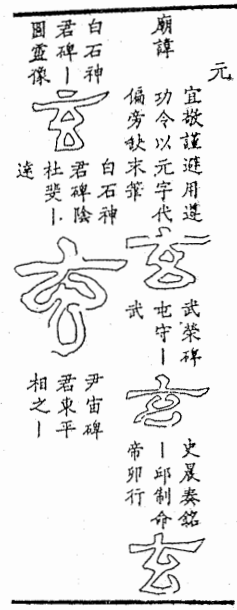 元
廟諱
宜敬謹避用遵
功令以元字代
偏旁缺末筆
玄
武榮碑
屯守丨
武
玄
史晨奏銘
丨邱制命
帝卯行
玄
白石神
君碑丨
圖靈像
玄
白石神
君碑陰
杜斐丨
達
玄
尹宙碑
君東平
相之丨